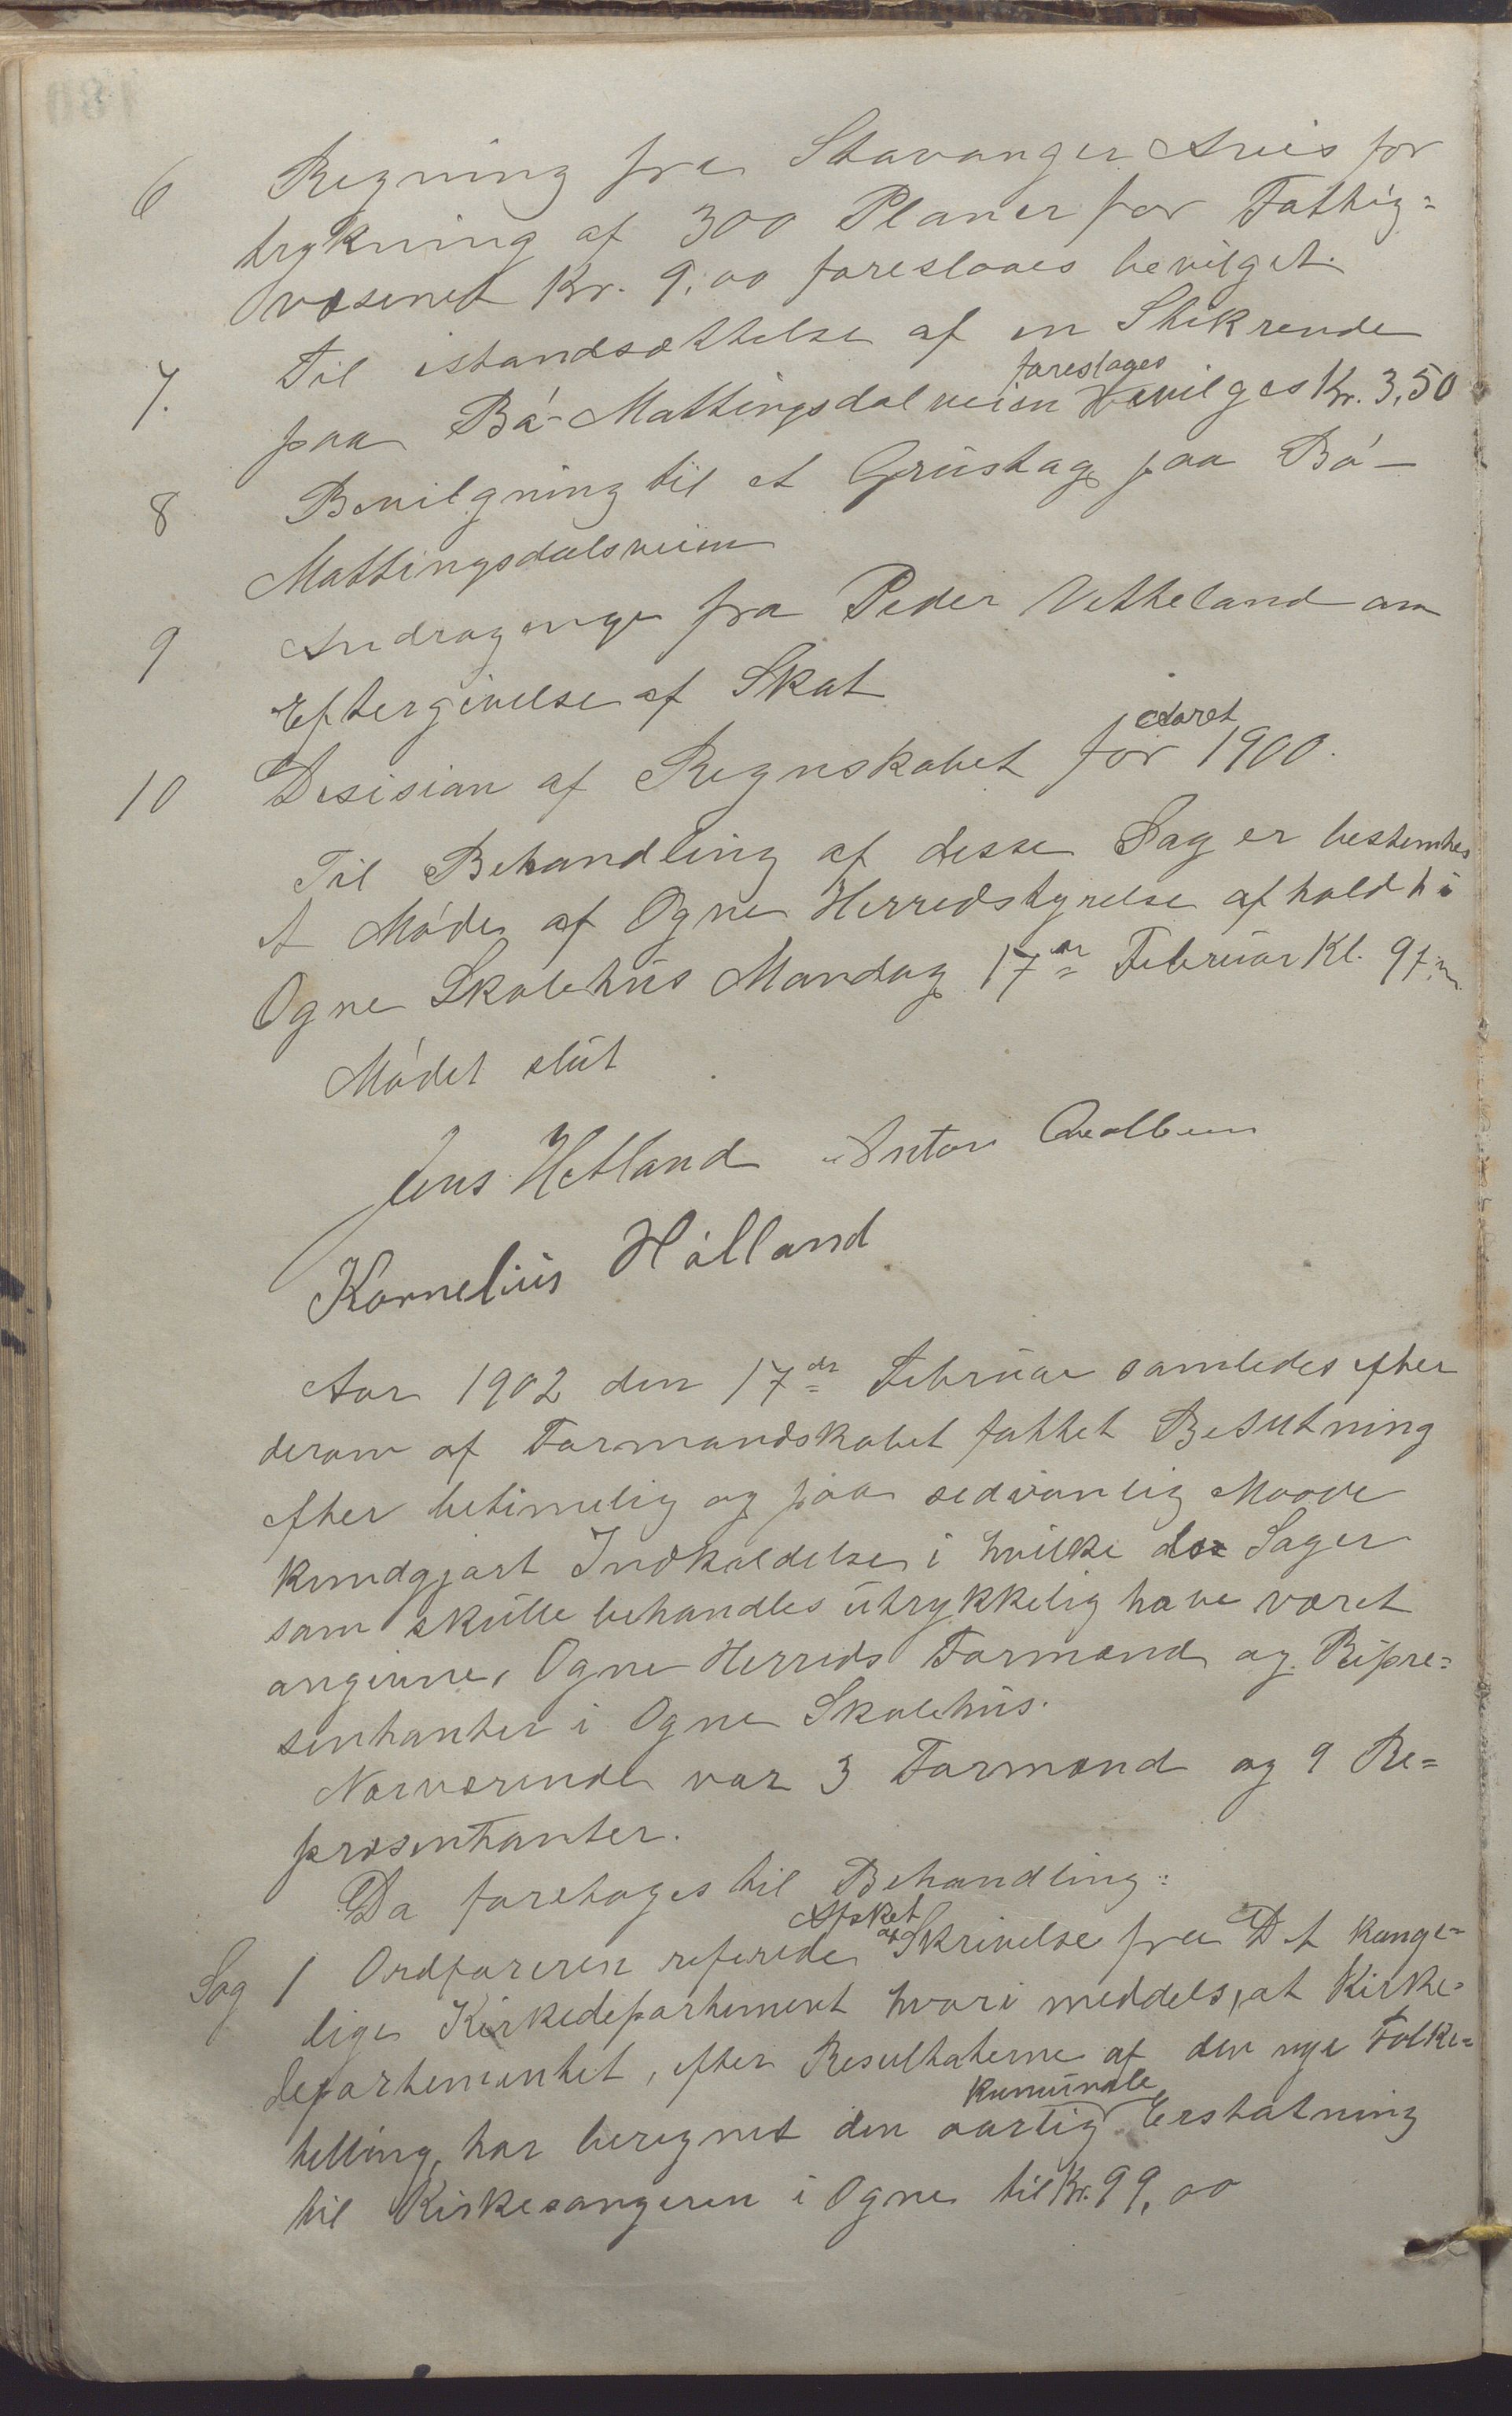 6 Regning fra Stavanger Avis for
trykning af 300 Planer for Fattig=
væsenet Kr. 9,00 foreslaaes bevilget.
7. Til istandsættelse af en Stikrende
foreslages
paa Bø-Mattingsdalveien bevilges Kr. 3,50
8 Bevilgning til et Grustag paa Bø-
Mattingsdalsveien
9 Andragenge fra Peder Vetteland om
Eftergivelse af Skat
Aaret
10 Desision af Regnskabet for 1900.
Til Behandling af desse Sager bestemtes
et Møde af Ogne Herredstyrelse afholdt i
Ogne Skolehus Mandag 17de Februar Kl. 9 f.m.
Mødet slut
Jens Hetland Anton
Kornelius Hölland
Aar 1902 den 17de Februar samledes efter
derom af Formandskabet fattet Beslutning
efter betimelig og paa sedvanlig Maade
kundgjort Indkaldelse i hvilke de Sager
som skulle behandles utrykkelig have været
angivne, Ogne Herreds Formænd og Repre=
sentanter i Ogne Skolehus.
Nærværende var 3 Formænd og 9 Re=
præsentanter.
Da foretoges til Behandling:
Afskt
af
Sag 1 Ordføreren referede Skrivelse fra Det konge=
lige Kirkedepartement hvori meddels, at Kirke=
departementet, efter Resultaterne af den nye Folke=
kumunale
telling, har beregnet den aarlig Erstatning
til Kirkesangeren i Ogne til Kr. 99,00